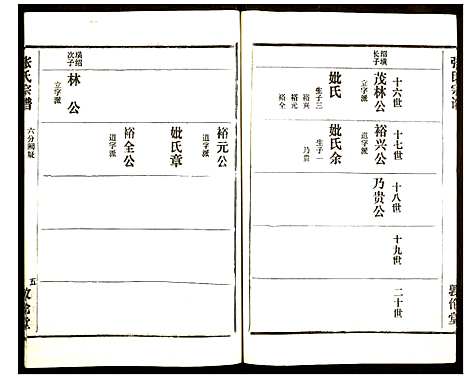 張氏宗譜
敦倫堂
十六世
十七世
十八世
十九世
二十世
紹璜長子
茂林公
立字派
妣氏
生子三
裕興
裕元
裕全
裕兴公
道字派
妣氏余
生子一
乃贵
乃贵公
裕元公
道字派
妣氏章
裕全公
道字派
紹
次子
林公
立字派
张氏宗谱
六分
五
敦倫堂